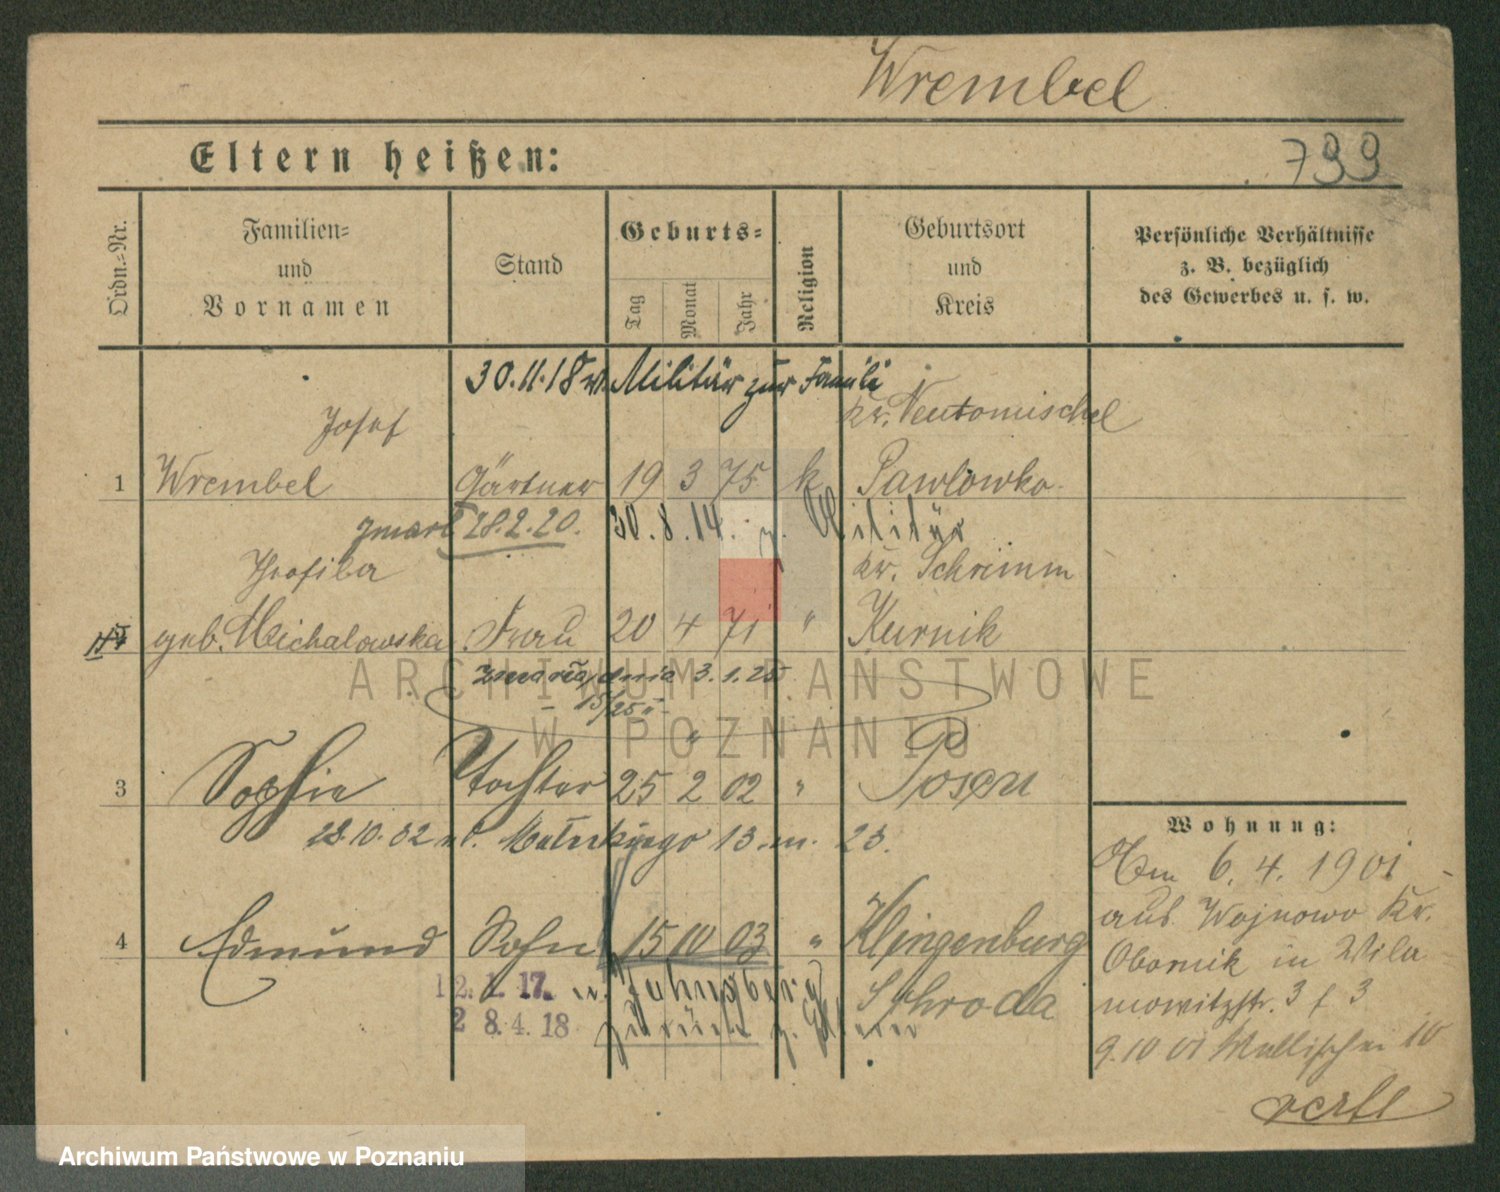 Wrembel
Eltern heißen:
799
Ordn.-Nr.
Familien-
und
Vornamen
Stand
Geburts-
Tag
Monat
Jahr
Religion
Geburtsort
und
Kreis
Persönliche Verhältnisse
z. B. bezüglich
des Gewerbes u. s. w.
30.11.18 v. Militär zur Famili
Josef
Kr. Neutomischel
1 Wrembel Gärtner 19 3 75 k Pawlowko
zmarł 28.2.20. 30.8.14. z. Militär
Kr. Schrimm
geb. Michalowska Frau 20 4 71 " Kurnik
zmarła dnia 3.1.25
15/25
3 Sophie Tochter 25 2 02 " Posen
28.10.32 13.m. 23.
4 Edmund Sohn 15 10 03 " Klingenburg
Schroda
12.1.17. n.
28.4.18 zurück z. Eltern
Wohnung:
Am 6.4.1901
aus Wojnowo Kr.
Obornik in Wila-
mowitzstr. 3
9.10 01 Wallischei 10
ARCHIWUM PAŃSTWOWE
W POZNANIU
Archiwum Państwowe w Poznaniu